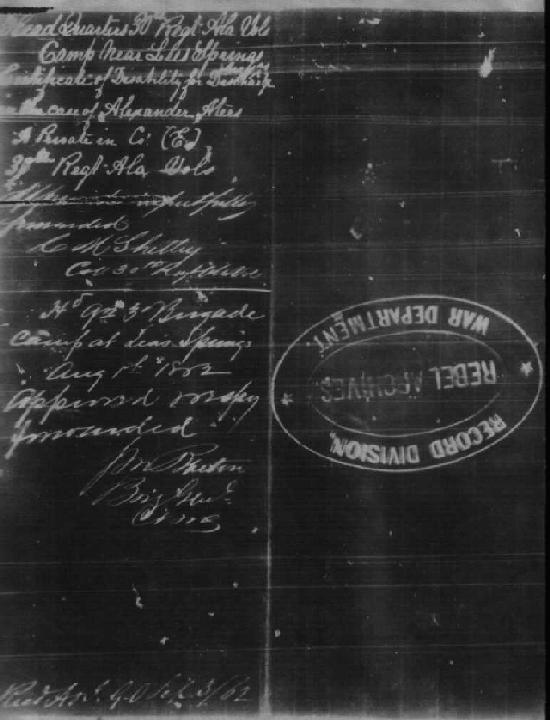 Head Quarters 30 Regt Ala Vols
Camp Near Lees Springs
Certificate of Disability for Discharge
in the case of Alexander
A Private in Co. (E)
30th Regt Ala Vols
respectfully
forwarded
C M Shelley
Col 30th Regt
Hd Qrs 3d Brigade
Camp at Lees Springs
Aug 1st 1862
Approved & respy
forwarded
Barton
Brig Genl
Comg
Sept 3/62
WAR DEPARTMENT.
REBEL ARCHIVES
RECORD DIVISION,